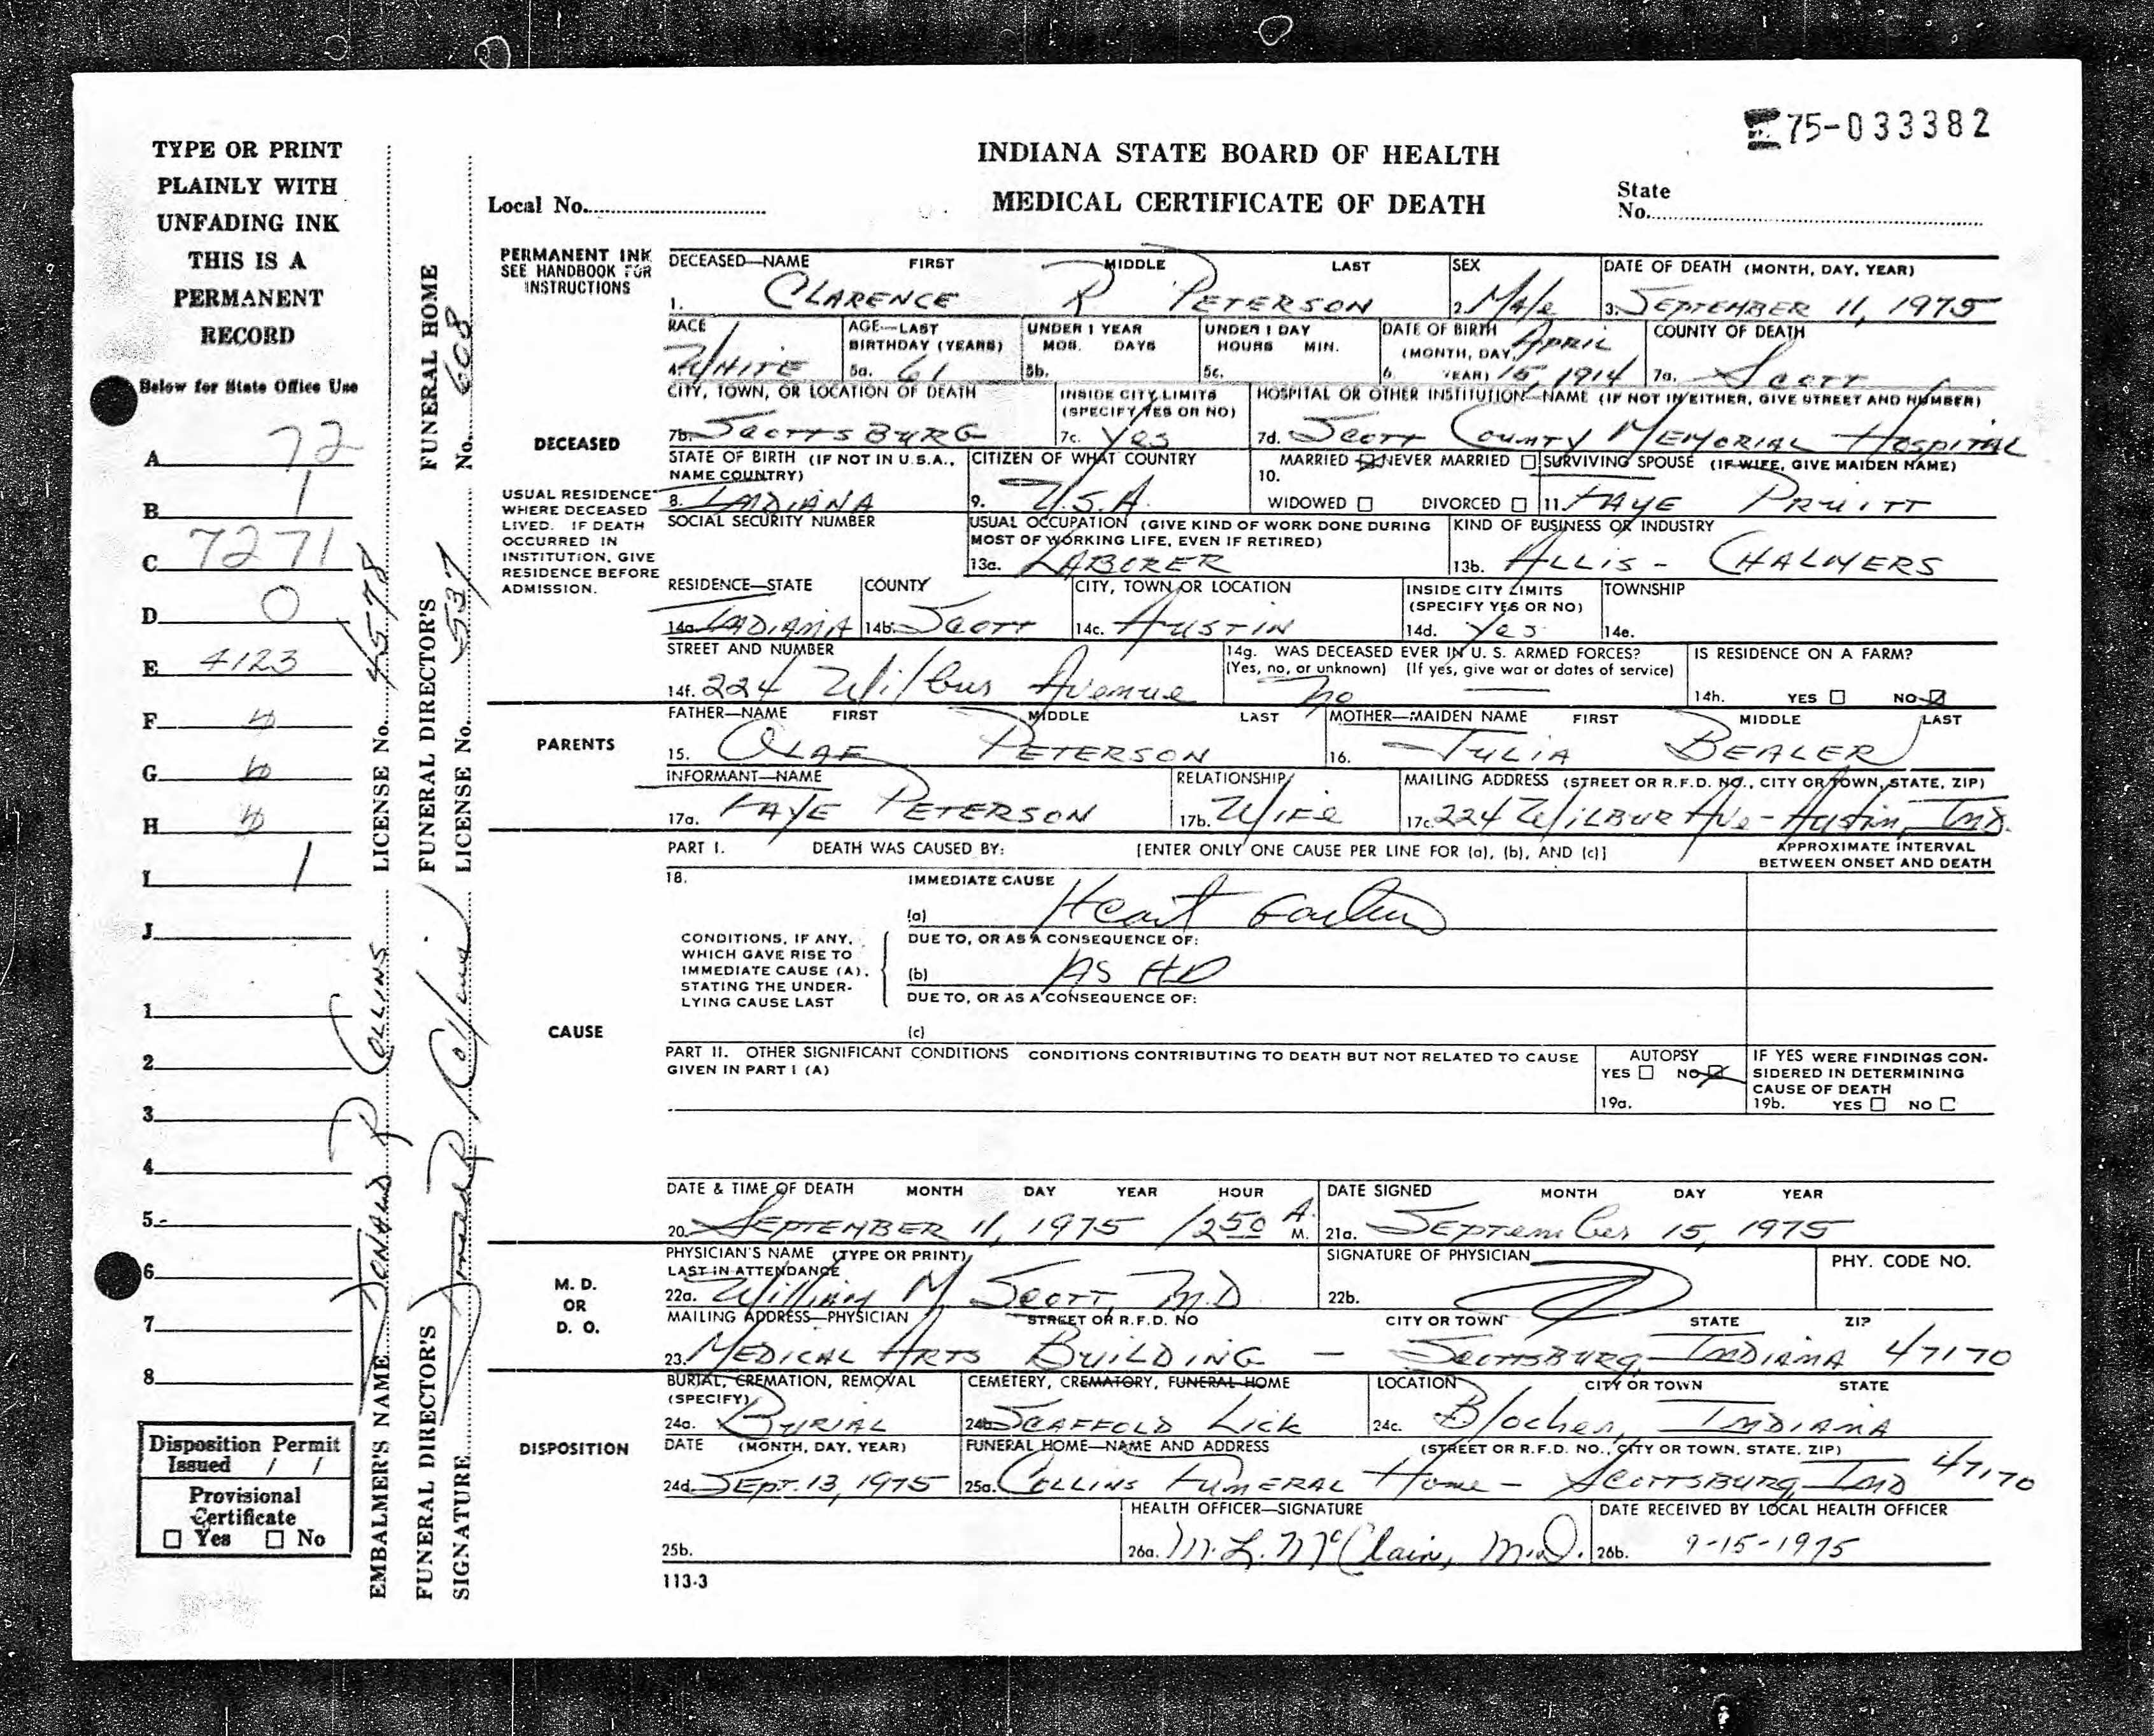 75-033382
INDIANA STATE BOARD OF HEALTH
MEDICAL CERTIFICATE OF DEATH
Local No.
State No.
TYPE OR PRINT
PLAINLY WITH
UNFADING INK
THIS IS A
PERMANENT
RECORD
Below for State Office Use
A 72
B 1
C 7271
D 0
E 4123
F 4
G
H
I 1
J
1
2
3
4
5
6
7
8
Disposition Permit
Issued / /
Provisional
Certificate
☐ Yes ☐ No
EMBALMER'S NAME DONALD R COLLINS LICENSE No. 4578
FUNERAL DIRECTOR'S SIGNATURE Donald R Collins
FUNERAL DIRECTOR'S LICENSE No. 537
FUNERAL HOME No. 608
PERMANENT INK
SEE HANDBOOK FOR
INSTRUCTIONS
DECEASED—NAME FIRST MIDDLE LAST
1. CLARENCE R PETERSON
SEX
2. Male
DATE OF DEATH (MONTH, DAY, YEAR)
3. SEPTEMBER 11, 1975
RACE
4. WHITE
AGE—LAST BIRTHDAY (YEARS)
5a. 61
UNDER 1 YEAR
MOS. DAYS
5b.
UNDER 1 DAY
HOURS MIN.
5c.
DATE OF BIRTH (MONTH, DAY, YEAR)
6. APRIL 15, 1914
COUNTY OF DEATH
7a. Scott
CITY, TOWN, OR LOCATION OF DEATH
7b. SCOTTSBURG
INSIDE CITY LIMITS (SPECIFY YES OR NO)
7c. Yes
HOSPITAL OR OTHER INSTITUTION—NAME (IF NOT IN EITHER, GIVE STREET AND NUMBER)
7d. SCOTT COUNTY MEMORIAL HOSPITAL
DECEASED
USUAL RESIDENCE
WHERE DECEASED
LIVED. IF DEATH
OCCURRED IN
INSTITUTION, GIVE
RESIDENCE BEFORE
ADMISSION.
STATE OF BIRTH (IF NOT IN U.S.A., NAME COUNTRY)
8. INDIANA
CITIZEN OF WHAT COUNTRY
9. U.S.A.
10. MARRIED ☒ NEVER MARRIED ☐
WIDOWED ☐ DIVORCED ☐
SURVIVING SPOUSE (IF WIFE, GIVE MAIDEN NAME)
11. FAYE PRUITT
SOCIAL SECURITY NUMBER
USUAL OCCUPATION (GIVE KIND OF WORK DONE DURING MOST OF WORKING LIFE, EVEN IF RETIRED)
13a. LABORER
KIND OF BUSINESS OR INDUSTRY
13b. ALLIS - CHALMERS
RESIDENCE—STATE
14a. INDIANA
COUNTY
14b. SCOTT
CITY, TOWN OR LOCATION
14c. AUSTIN
INSIDE CITY LIMITS (SPECIFY YES OR NO)
14d. Yes
TOWNSHIP
14e.
STREET AND NUMBER
14f. 224 Wilbur Avenue
14g. WAS DECEASED EVER IN U. S. ARMED FORCES?
(Yes, no, or unknown) (If yes, give war or dates of service)
no —
IS RESIDENCE ON A FARM?
14h. YES ☐ NO ☒
PARENTS
FATHER—NAME FIRST MIDDLE LAST
15. OLAF PETERSON
MOTHER—MAIDEN NAME FIRST MIDDLE LAST
16. JULIA BEALER
INFORMANT—NAME
17a. FAYE PETERSON
RELATIONSHIP
17b. WIFE
MAILING ADDRESS (STREET OR R.F.D. NO., CITY OR TOWN, STATE, ZIP)
17c. 224 WILBUR AVE - Austin, IND.
PART I. DEATH WAS CAUSED BY: [ENTER ONLY ONE CAUSE PER LINE FOR (a), (b), AND (c)]
APPROXIMATE INTERVAL
BETWEEN ONSET AND DEATH
18.
IMMEDIATE CAUSE
(a) Heart Failure
CONDITIONS, IF ANY,
WHICH GAVE RISE TO
IMMEDIATE CAUSE (A),
STATING THE UNDER-
LYING CAUSE LAST
DUE TO, OR AS A CONSEQUENCE OF:
(b) AS HD
DUE TO, OR AS A CONSEQUENCE OF:
(c)
CAUSE
PART II. OTHER SIGNIFICANT CONDITIONS CONDITIONS CONTRIBUTING TO DEATH BUT NOT RELATED TO CAUSE
GIVEN IN PART I (A)
AUTOPSY
YES ☐ NO ☒
19a.
IF YES WERE FINDINGS CON-
SIDERED IN DETERMINING
CAUSE OF DEATH
19b. YES ☐ NO ☐
DATE & TIME OF DEATH MONTH DAY YEAR HOUR
20. SEPTEMBER 11, 1975 1250 A. M.
DATE SIGNED MONTH DAY YEAR
21a. September 15, 1975
M. D.
OR
D. O.
PHYSICIAN'S NAME (TYPE OR PRINT)
LAST IN ATTENDANCE
22a. William M Scott, M.D
SIGNATURE OF PHYSICIAN
22b.
PHY. CODE NO.
MAILING ADDRESS—PHYSICIAN STREET OR R.F.D. NO CITY OR TOWN STATE ZIP
23. MEDICAL ARTS BUILDING — SCOTTSBURG, INDIANA 47170
DISPOSITION
BURIAL, CREMATION, REMOVAL (SPECIFY)
24a. BURIAL
CEMETERY, CREMATORY, FUNERAL HOME
24b. SCAFFOLD Lick
LOCATION CITY OR TOWN STATE
24c. Blocher, INDIANA
DATE (MONTH, DAY, YEAR)
24d. SEPT. 13, 1975
FUNERAL HOME—NAME AND ADDRESS (STREET OR R.F.D. NO., CITY OR TOWN, STATE, ZIP)
25a. COLLINS FUNERAL Home - SCOTTSBURG IND 47170
25b.
HEALTH OFFICER—SIGNATURE
26a. M. L. McClain, M.D.
DATE RECEIVED BY LOCAL HEALTH OFFICER
26b. 9-15-1975
113-3